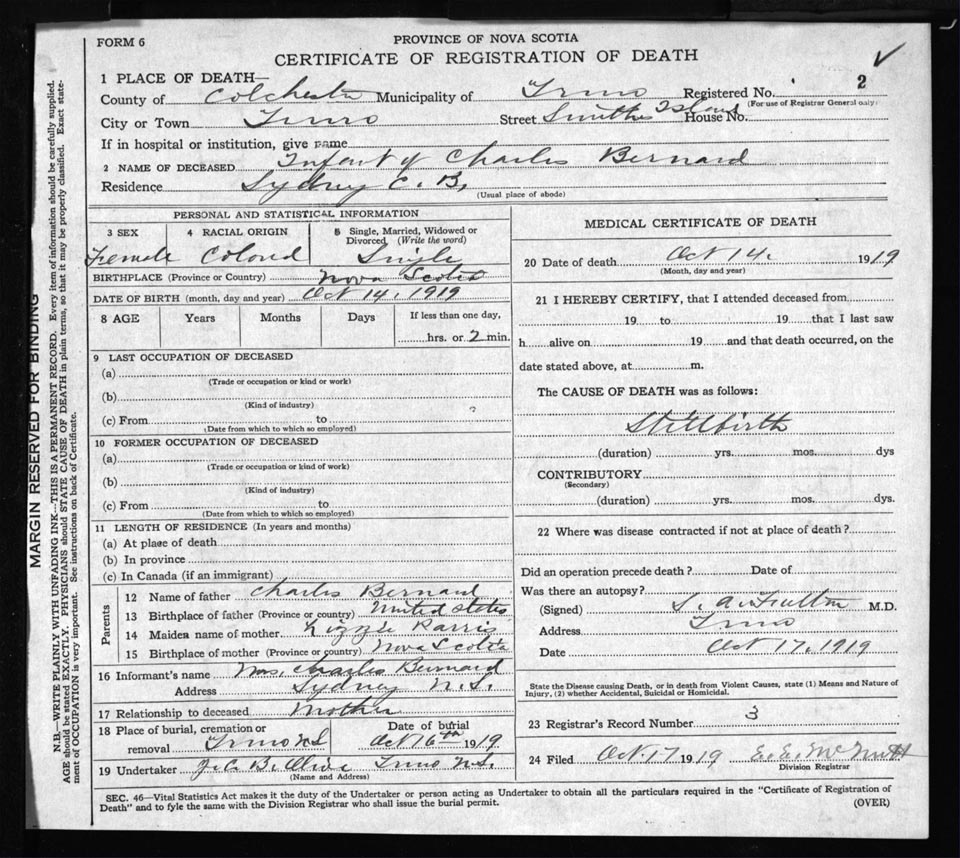 FORM 6
PROVINCE OF NOVA SCOTIA
CERTIFICATE OF REGISTRATION OF DEATH
1 PLACE OF DEATH—
County of Colchester Municipality of Truro Registered No. 2
(For use of Registrar General only)
City or Town Truro Street Smiths Island House No.
If in hospital or institution, give name
2 NAME OF DECEASED Infant of Charles Bernard
Residence Sydney C. B.
(Usual place of abode)
PERSONAL AND STATISTICAL INFORMATION
3 SEX 4 RACIAL ORIGIN 5 Single, Married, Widowed or Divorced (Write the word)
Female Colored Single
BIRTHPLACE (Province or Country) Nova Scotia
DATE OF BIRTH (month, day and year) Oct 14. 1919
8 AGE Years Months Days If less than one day,
hrs. or 2 min.
9 LAST OCCUPATION OF DECEASED
(a)
(Trade or occupation or kind or work)
(b)
(Kind of industry)
(c) From to
(Date from which to which so employed)
10 FORMER OCCUPATION OF DECEASED
(a)
(Trade or occupation or kind of work)
(b)
(Kind of industry)
(c) From to
(Date from which to which so employed)
11 LENGTH OF RESIDENCE (In years and months)
(a) At place of death
(b) In province
(c) In Canada (if an immigrant)
Parents
12 Name of father Charles Bernard
13 Birthplace of father (Province or country) United States
14 Maiden name of mother Lizzie Parris
15 Birthplace of mother (Province or country) Nova Scotia
16 Informant's name Mrs. Charles Bernard
Address Sydney N.S.
17 Relationship to deceased Mother
18 Place of burial, cremation or Date of burial
removal Truro N S Oct 16th 1919
19 Undertaker Truro N.S.
(Name and Address)
MEDICAL CERTIFICATE OF DEATH
20 Date of death Oct 14. 1919
(Month, day and year)
21 I HEREBY CERTIFY, that I attended deceased from
19 to 19 that I last saw
h alive on 19 and that death occurred, on the
date stated above, at m.
The CAUSE OF DEATH was as follows:
Stillbirth
(duration) yrs. mos. dys
CONTRIBUTORY
(Secondary)
(duration) yrs. mos. dys.
22 Where was disease contracted if not at place of death?
Did an operation precede death? Date of
Was there an autopsy?
(Signed) S. A. Fulton M.D.
Address Truro
Date Oct 17. 1919
State the Disease causing Death, or in death from Violent Causes, state (1) Means and Nature of
Injury, (2) whether Accidental, Suicidal or Homicidal.
23 Registrar's Record Number 3
24 Filed Oct 17 1919 E. E. McNutt
Division Registrar
SEC. 46—Vital Statistics Act makes it the duty of the Undertaker or person acting as Undertaker to obtain all the particulars required in the "Certificate of Registration of
Death" and to fyle the same with the Division Registrar who shall issue the burial permit.
(OVER)
MARGIN RESERVED FOR BINDING
N.B.—WRITE PLAINLY WITH UNFADING INK—THIS IS A PERMANENT RECORD. Every item of information should be carefully supplied.
AGE should be stated EXACTLY. PHYSICIANS should STATE CAUSE OF DEATH in plain terms, so that it may be properly classified. Exact state-
ment of OCCUPATION is very important. See instructions on back of Certificate.